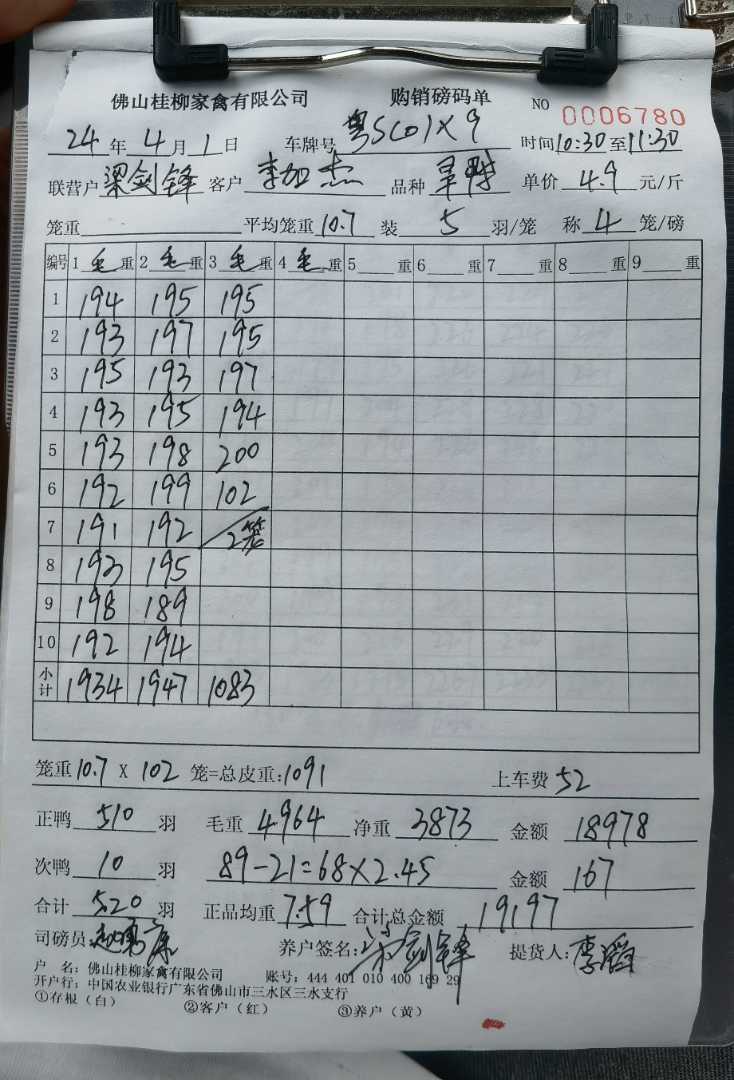 佛山桂柳家禽有限公司 购销磅码单 NO 0006780
24年4月1日 车牌号 粤SC01X9 时间10:30至11:30
联营户 梁剑锋 客户 李加杰 品种 单价 4.9 元/斤
笼重 平均笼重 10.7 装 5 羽/笼 称 4 笼/磅
编号 1 毛 重 2 毛 重 3 毛 重 4 毛 重 5 重 6 重 7 重 8 重 9 重
1 194 195 195
2 193 197 195
3 195 193 197
4 193 195 194
5 193 198 200
6 192 199 102
7 191 192 2笼
8 193 195
9 198 189
10 192 194
小计 1934 1947 1083
笼重 10.7 X 102 笼=总皮重:1091 上车费 52
正鸭 510 羽 毛重 4964 净重 3873 金额 18978
次鸭 10 羽 89-21=68×2.45 金额 167
合计 520 羽 正品均重 7.59 合计总金额 19197
司磅员: 养户签名: 梁剑锋 提货人: 李滔
户 名: 佛山桂柳家禽有限公司 账号: 444 401 010 400 169 29
开户行: 中国农业银行广东省佛山市三水区三水支行
①存根（白） ②客户（红） ③养户（黄）